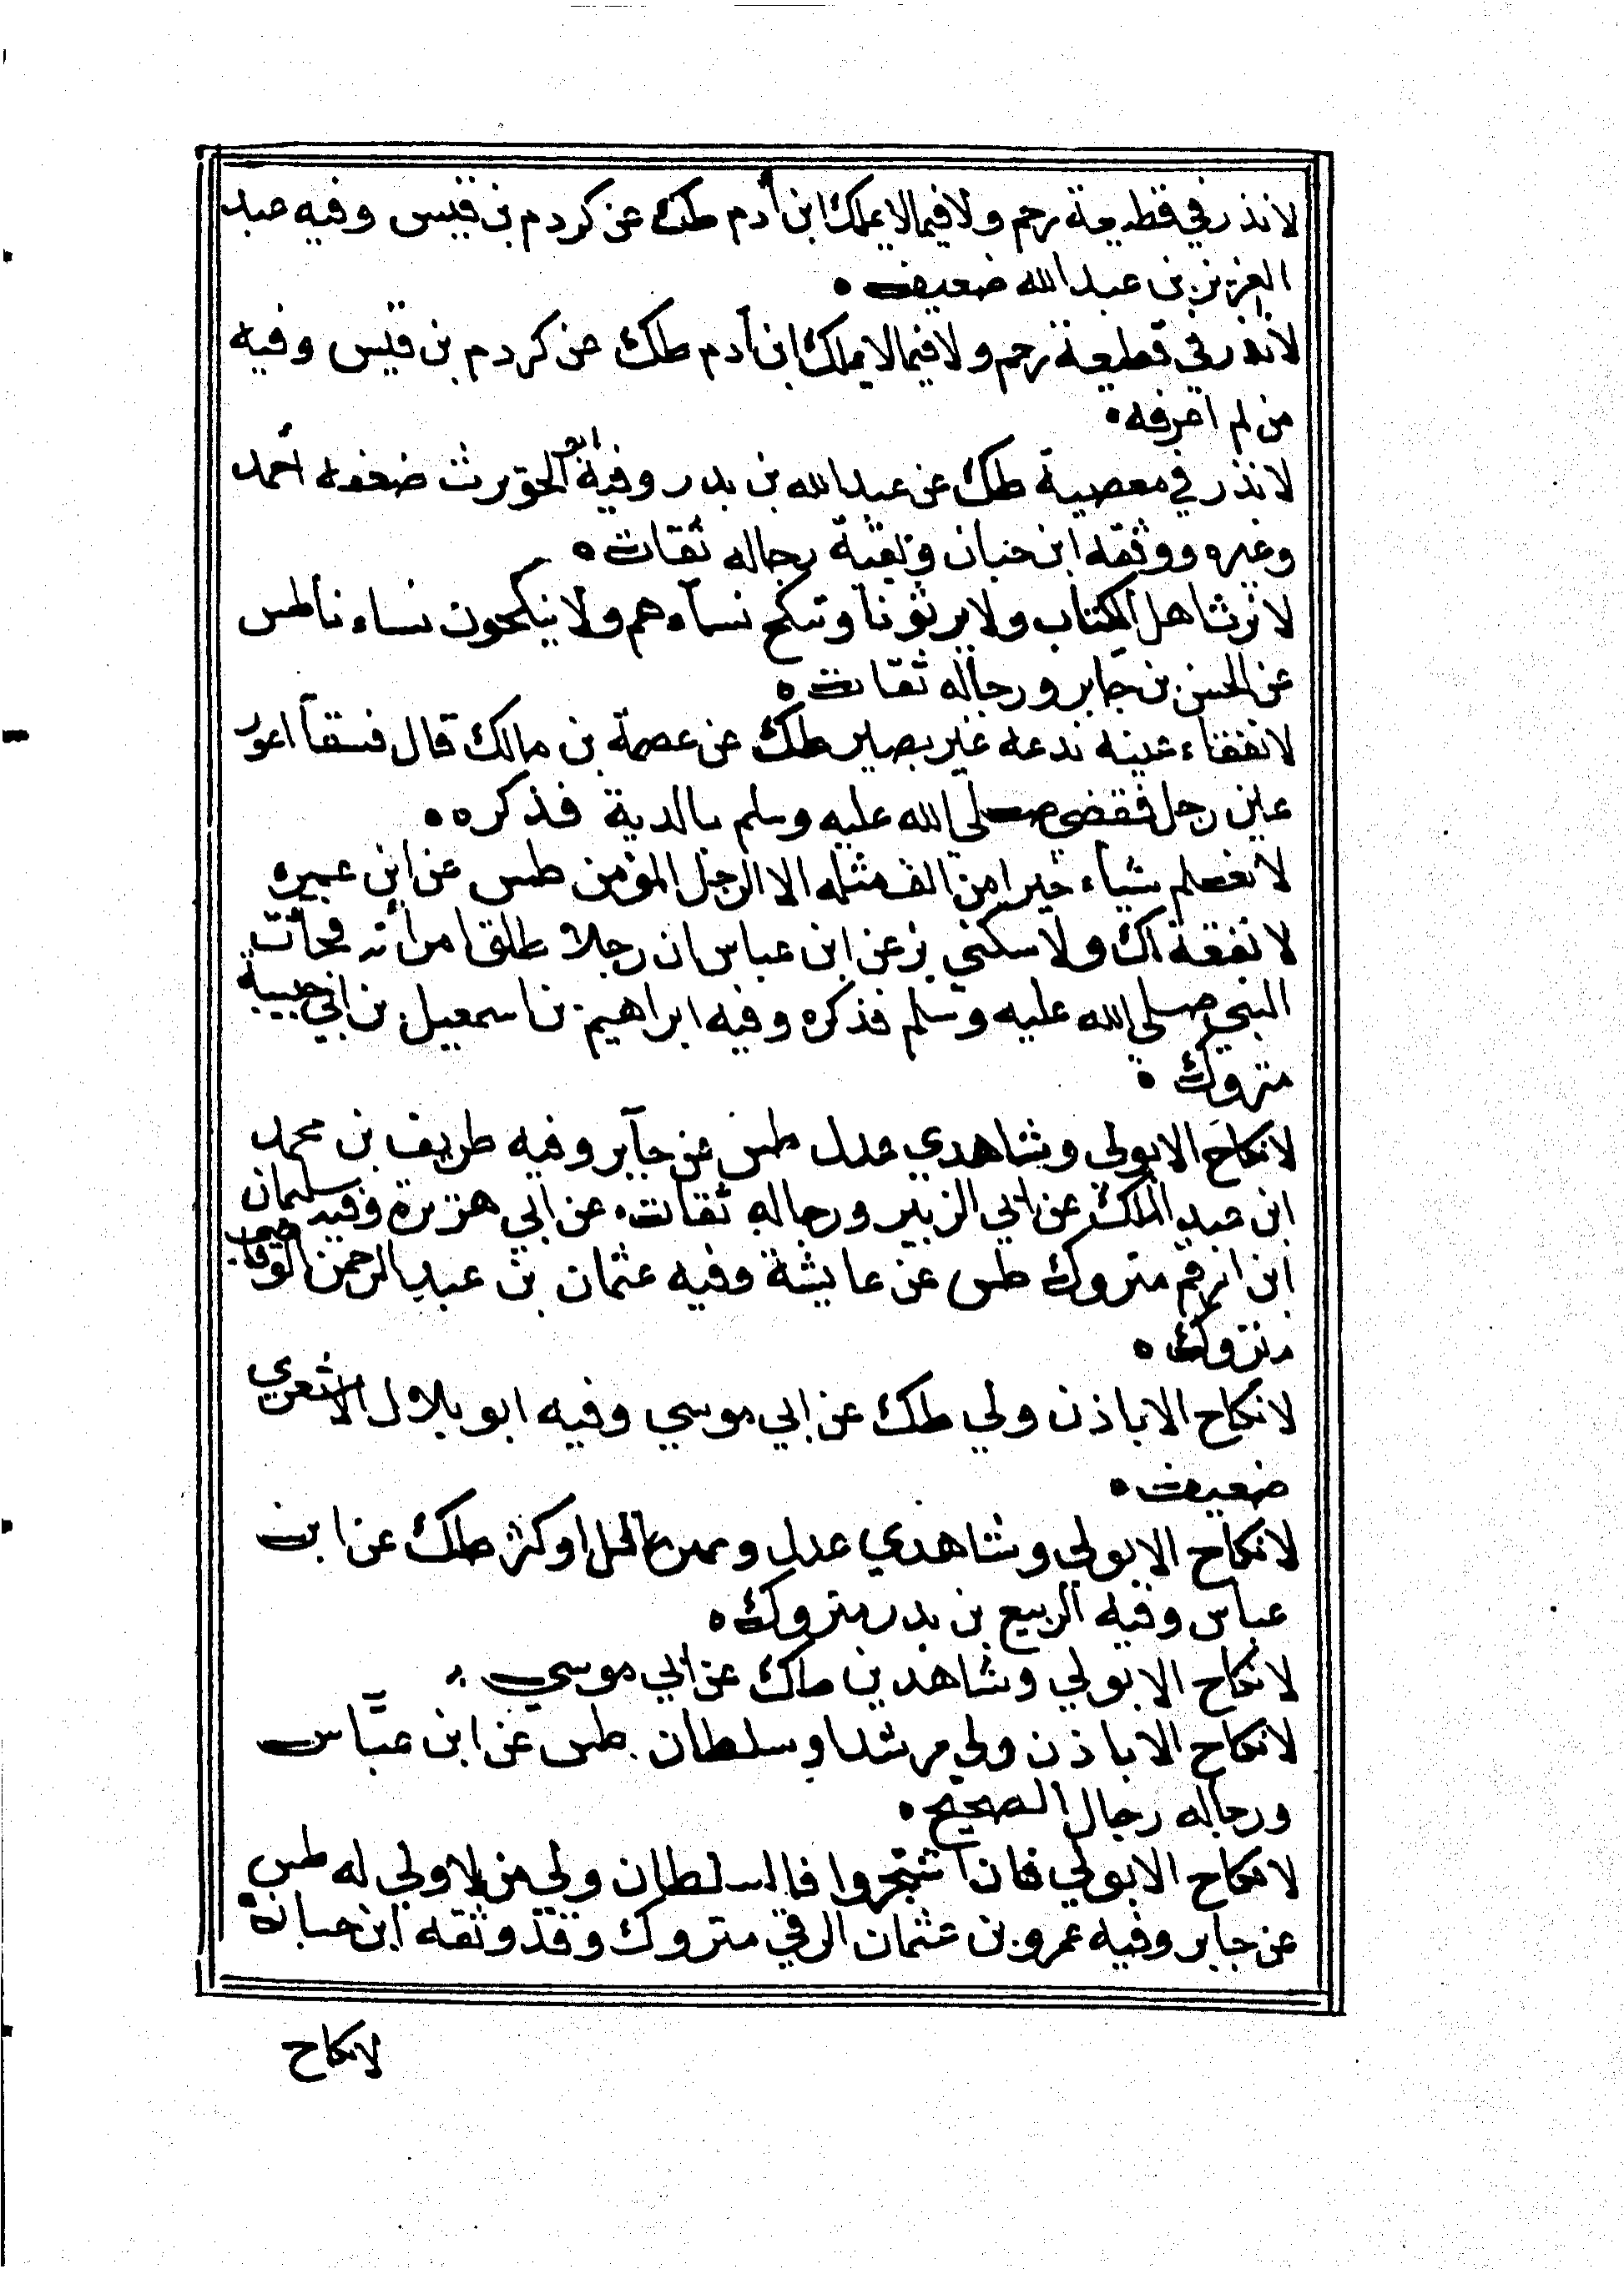 لا نذر في قطيعة رحم ولا فيما لا يملك ابن أدم طك عن كردم بن قيس وفيه عبد
العزيز بن عبد الله ضعيف ه
لا نذر في قطيعة رحم ولا فيما لا يملك ابن أدم طك عن كردم بن قيس وفيه
من لم اعرفه ه
لا نذر في معصية طك عن عبد الله بن بدر وفيه ابو الحويرث ضعفه أحمد
وغيره ووثقه ابن حبان وبقية رجاله ثقات ه
لا نرث اهل الكتاب ولا يرثونا وننكح نسآءهم ولا ينكحون نساءنا طس
عن الحسن بن جابر ورجاله ثقات ه
لا نفقاء عينه ندعه غير بصير طك عن عصمة بن مالك قال فسقأ اعور
عين رجل فقضي صلي الله عليه وسلم بالدية فذكره ه
لا نعلم شيأ خيرا من الف مثله الا الرجل المؤمن طس عن ابن عمره
لا نفقة لك ولا سكني بز عن ابن عباس ان رجلا طلق امرأته فجأت
النبي صلي الله عليه وسلم فذكره وفيه ابراهيم بن اسمعيل بن ابي حبيبة
متروك ه
لا نكاح الا بولي وشاهدي عدل طس عن جآبر وفيه طريف بن محمد
ابن عبد الملك عن ابي الزبير ورجاله ثقات ه عن ابي هريرة وفيه سليمان
ابن ارقم متروك طس عن عايشة وفيه عثمان بن عبد الرحمن الوقاصي
متروك ه
لا نكاح الا باذن ولي طك عن ابي موسي وفيه ابو بلال الاشعري
ضعيف ه
لا نكاح الا بولي وشاهدي عدل ومهر ما قل او كثر طك عن ابن
عباس وفيه الربيع بن بدر متروك ه
لا نكاح الا بولي وشاهدين طك عن ابي موسي
لا نكاح الا باذن ولي مرشد او سلطان طس عن ابن عبّاس
ورجاله رجال الصحيح ه
لا نكاح الا بولي فان اشتجروا فالسلطان ولي من لا ولي له طس
عن جابر وفيه عمرو بن عثمان الرقي متروك وقد وثقه ابن حبان ه
لا نكاح